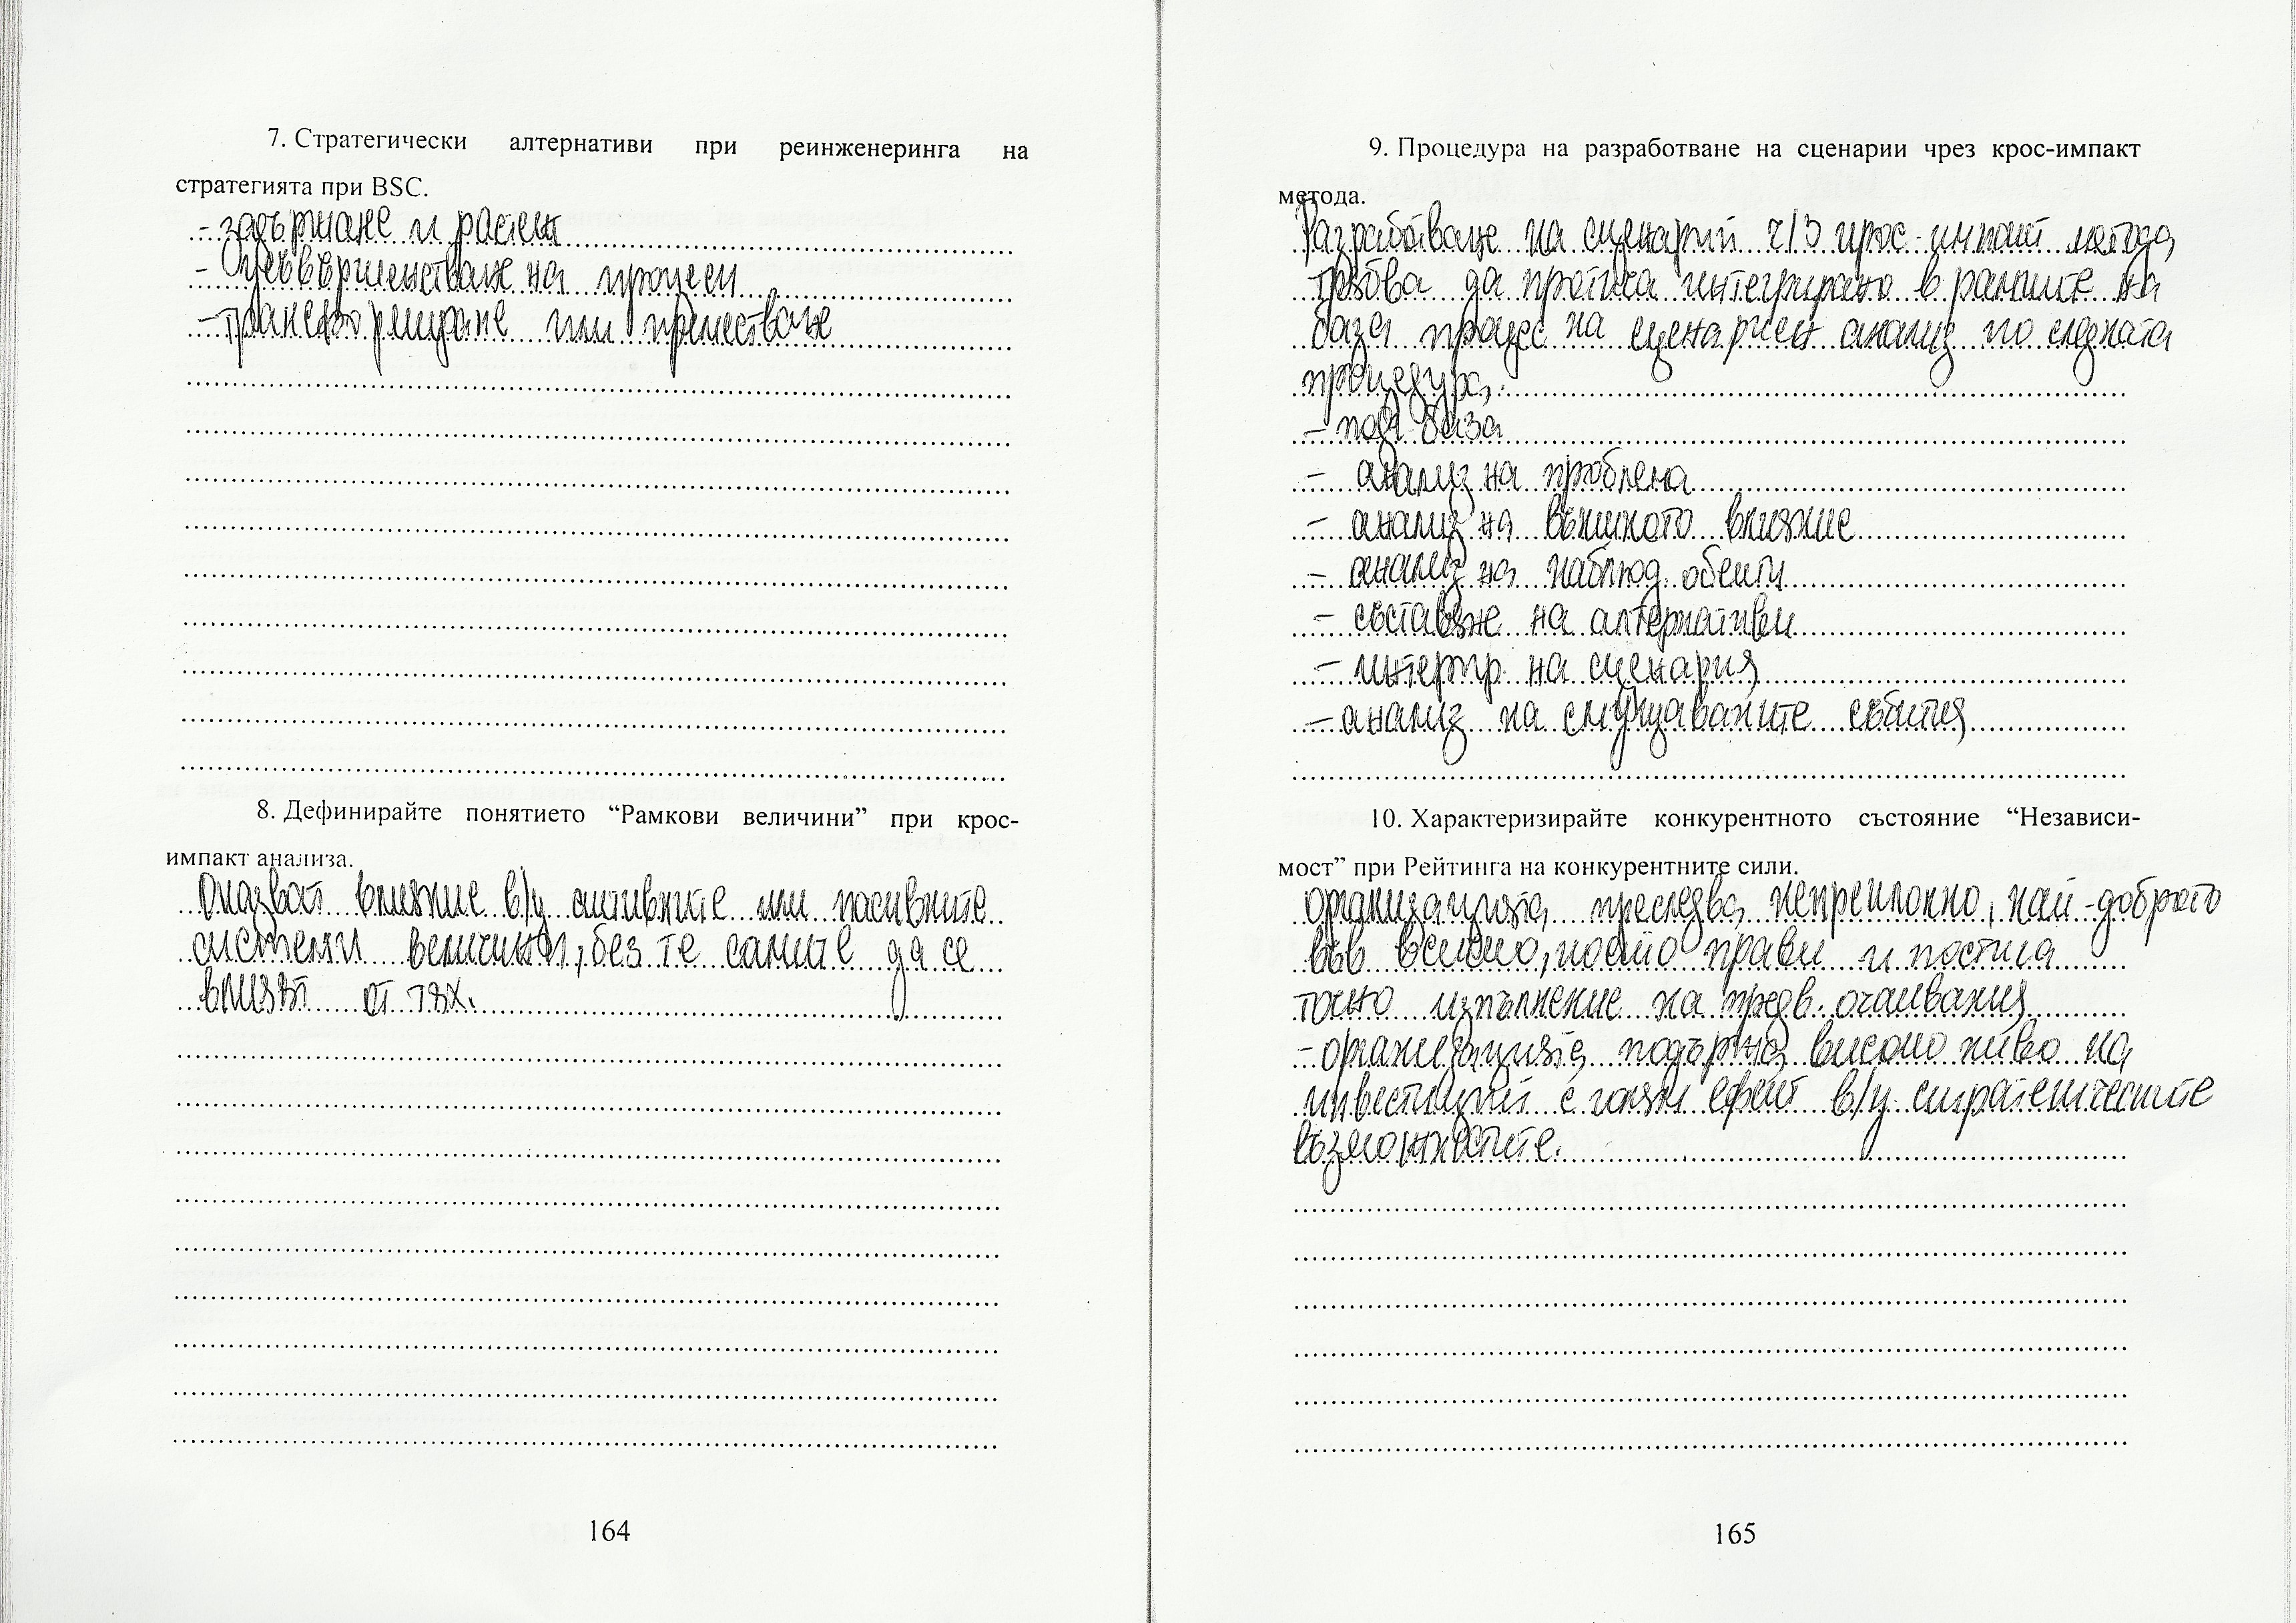 7. Стратегически алтернативи при реинженеринга на
стратегията при BSC.
- задържане и растеж
- усъвършенстване на процеси
- трансформиране или преместване
8. Дефинирайте понятието “Рамкови величини” при крос-
импакт анализа.
Оказват влияние в/у активните или пасивните
системни величини, без те самите да се
влияят от тях.
164
9. Процедура на разработване на сценарии чрез крос-импакт
метода.
Разработване на сценарий ч/з крос-импакт метода
трябва да протича интегрирано в рамките на
база процес на сценариен анализ по следната
процедура:
- под база
- анализ на проблема
- анализ на външното влияние
- анализ на наблюд.
- съставяне на алтернативи
- интерпр. на сценария
- анализ на смущаващите събития
10. Характеризирайте конкурентното състояние “Независи-
мост” при Рейтинга на конкурентните сили.
организацията преследва непреклонно, най-доброто
във всичко, което прави и постига
точно изпълнение на предв. очаквания
- организацията подържа високо ниво на
инвестиции с голям ефект в/у стратегическите
възможностите.
165